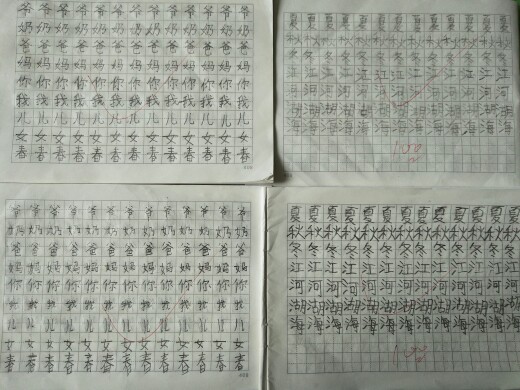 爷爷爷爷爷爷爷爷爷爷爷爷
奶奶奶奶奶奶奶奶奶奶奶奶
爸爸爸爸爸爸爸爸爸爸爸爸
妈妈妈妈妈妈妈妈妈妈妈妈
你你你你你你你你你你你你
我我我我我我我我我我我我
儿儿儿儿儿儿儿儿儿儿儿儿
女女女女女女女女女女女女
春春春春春春春春春春春春
夏夏夏夏夏夏夏夏夏夏夏夏
秋秋秋秋秋秋秋秋秋秋秋秋
冬冬冬冬冬冬冬冬冬冬冬冬
江江江江江江江江江江江江
河河河河河河河河河河河河
湖湖湖湖湖湖湖湖湖湖湖湖
海海海海海海海海海海海海
100
爷爷爷爷爷爷爷爷爷爷爷
奶奶奶奶奶奶奶奶奶奶奶
爸爸爸爸爸爸爸爸爸爸爸
妈妈妈妈妈妈妈妈妈妈妈
你你你你你你你你你你你
我我我我我我我我我我我
儿儿儿儿儿儿儿儿儿儿儿
女女女女女女女女女女女
春春春春春春春春春春春
夏夏夏夏夏夏夏夏夏夏夏夏
秋秋秋秋秋秋秋秋秋秋秋秋
冬冬冬冬冬冬冬冬冬冬冬冬
江江江江江江江江江江江江
河河河河河河河河河河河河
湖湖湖湖湖湖湖湖湖湖湖湖
海海海海海海海海海海海海
100